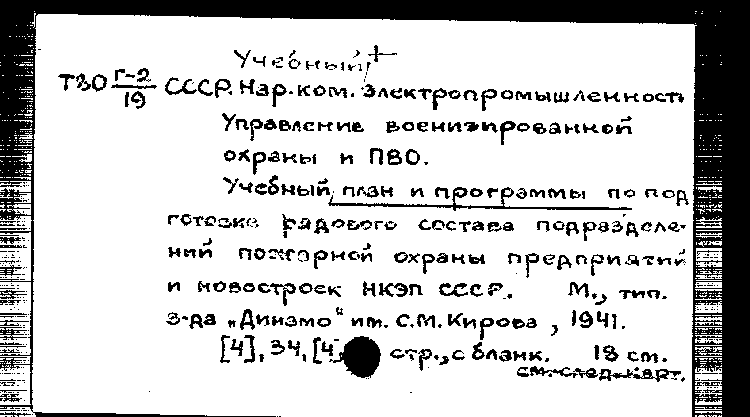 Учебный +
ТВО Г-2/19 СССР. Нар.ком. электропромышленности
Управление военизированной
охраны и ПВО.
Учебный план и программы по под
готовке рядового состава подразделе-
ний пожарной охраны предприятий
и новостроек НКЭП СССР. М., тип.
з-да „Динамо" им. С.М. Кирова, 1941.
[4], 34, [4] стр., с бланк. 18 см.
см. след. карт.